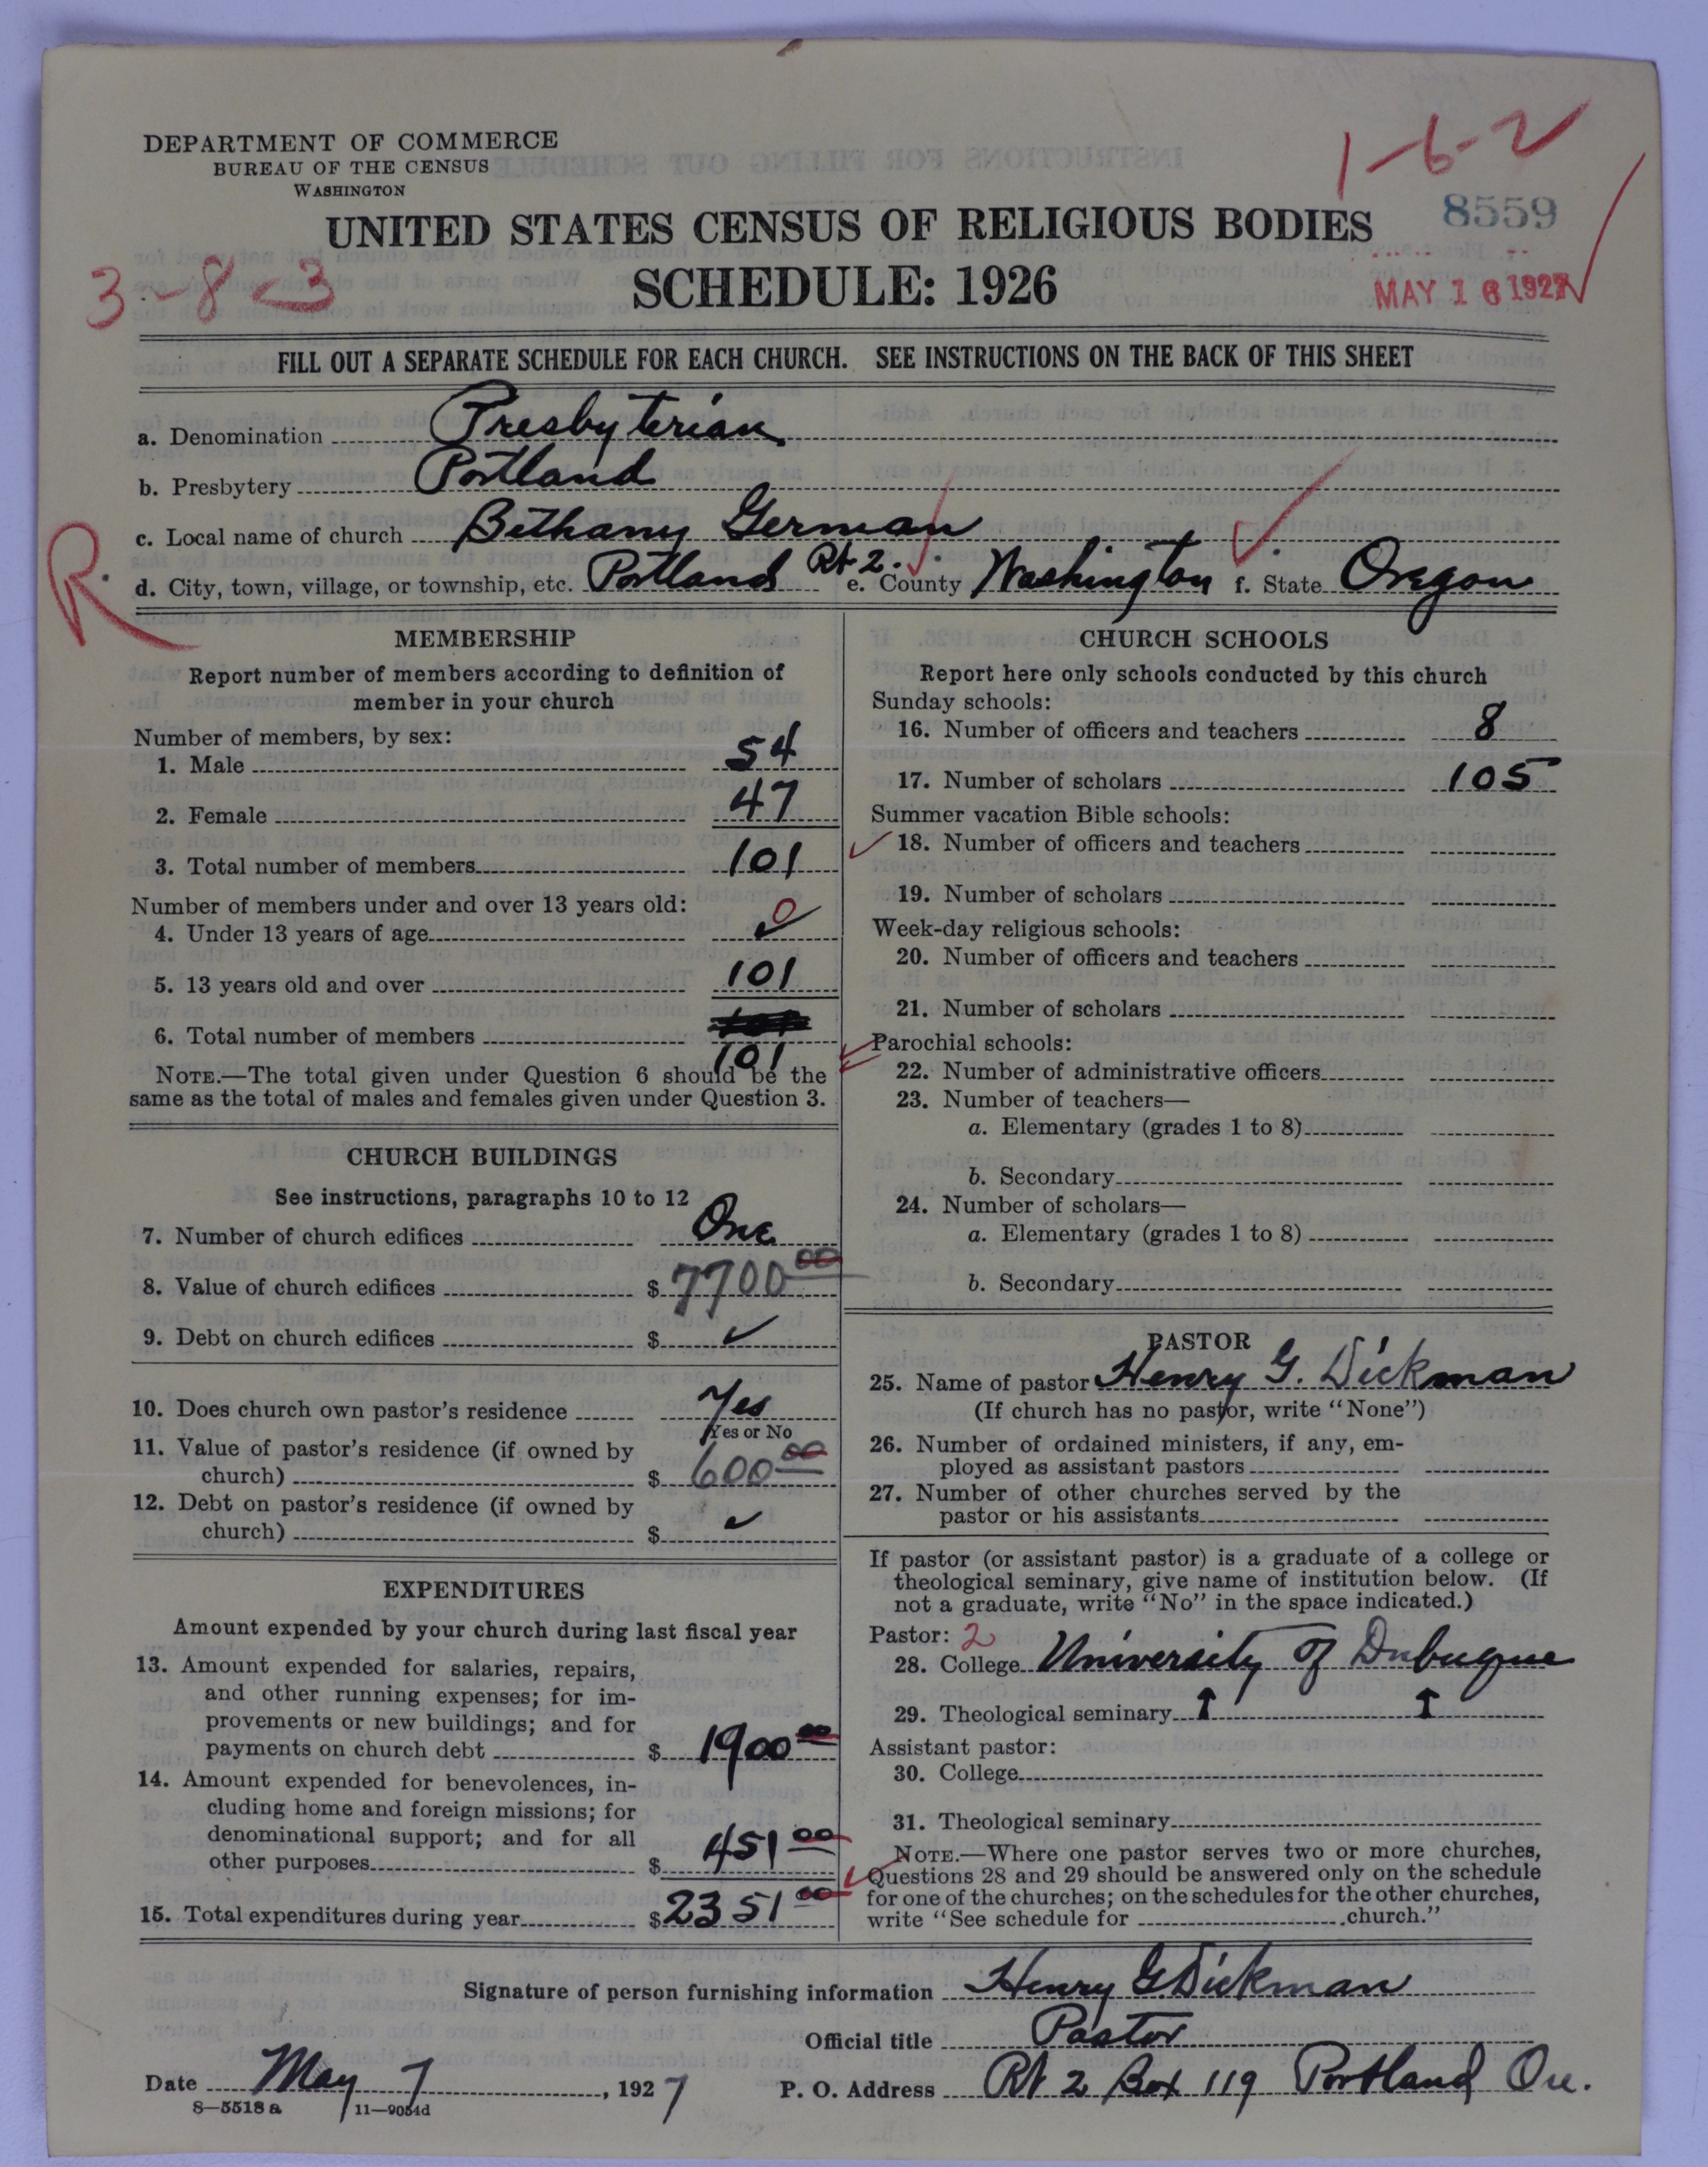 DEPARTMENT OF COMMERCE
BUREAU OF THE CENSUS
WASHINGTON
1-6-2
8559
UNITED STATES CENSUS OF RELIGIOUS BODIES
3-8-3
SCHEDULE: 1926
MAY 16 1927
FILL OUT A SEPARATE SCHEDULE FOR EACH CHURCH. SEE INSTRUCTIONS ON THE BACK OF THIS SHEET
a. Denomination Presbyterian
b. Presbytery Portland
c. Local name of church Bethany German
R
d. City, town, village, or township, etc. Portland Rt 2. e. County Washington f. State Oregon
MEMBERSHIP
Report number of members according to definition of
member in your church
Number of members, by sex:
1. Male 54
2. Female 47
3. Total number of members 101
Number of members under and over 13 years old:
4. Under 13 years of age 0
5. 13 years old and over 101
6. Total number of members
101
NOTE.—The total given under Question 6 should be the
same as the total of males and females given under Question 3.
CHURCH BUILDINGS
See instructions, paragraphs 10 to 12
7. Number of church edifices One
8. Value of church edifices $ 7700 00
9. Debt on church edifices $ ✓
10. Does church own pastor's residence Yes
Yes or No
11. Value of pastor's residence (if owned by
church) $ 600 00
12. Debt on pastor's residence (if owned by
church) $ ✓
EXPENDITURES
Amount expended by your church during last fiscal year
13. Amount expended for salaries, repairs,
and other running expenses; for im-
provements or new buildings; and for
payments on church debt $ 1900 00
14. Amount expended for benevolences, in-
cluding home and foreign missions; for
denominational support; and for all
other purposes $ 451 00
15. Total expenditures during year $ 2351 00
CHURCH SCHOOLS
Report here only schools conducted by this church
Sunday schools:
16. Number of officers and teachers 8
17. Number of scholars 105
Summer vacation Bible schools:
18. Number of officers and teachers
19. Number of scholars
Week-day religious schools:
20. Number of officers and teachers
21. Number of scholars
Parochial schools:
22. Number of administrative officers
23. Number of teachers—
a. Elementary (grades 1 to 8)
b. Secondary
24. Number of scholars—
a. Elementary (grades 1 to 8)
b. Secondary
PASTOR
25. Name of pastor Henry G. Dickman
(If church has no pastor, write "None")
26. Number of ordained ministers, if any, em-
ployed as assistant pastors
27. Number of other churches served by the
pastor or his assistants
If pastor (or assistant pastor) is a graduate of a college or
theological seminary, give name of institution below. (If
not a graduate, write "No" in the space indicated.)
Pastor: 2
28. College University of Dubuque
29. Theological seminary ↑ ↑
Assistant pastor:
30. College
31. Theological seminary
NOTE.—Where one pastor serves two or more churches,
Questions 28 and 29 should be answered only on the schedule
for one of the churches; on the schedules for the other churches,
write "See schedule for church."
Signature of person furnishing information Henry G. Dickman
Official title Pastor
Date May 7, 1927 P. O. Address Rt 2 Box 119 Portland Ore.
8—5518a 11—9054d